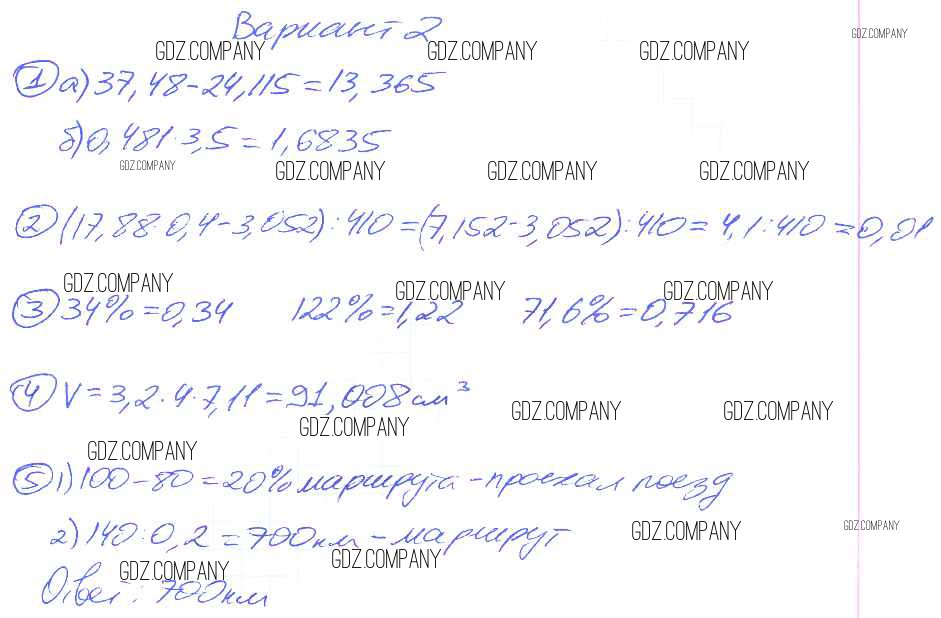 Вариант 2
GDZ.COMPANY GDZ.COMPANY GDZ.COMPANY GDZ.COMPANY
1 а) 37,48-24,115=13,365
б) 0,481·3,5=1,6835
GDZ.COMPANY GDZ.COMPANY GDZ.COMPANY GDZ.COMPANY
2 (17,88·0,4-3,052):410=(7,152-3,052):410=4,1:410=0,01
GDZ.COMPANY GDZ.COMPANY GDZ.COMPANY
3 34%=0,34 122%=1,22 71,6%=0,716
4 V=3,2·4·7,11=91,008см³
GDZ.COMPANY GDZ.COMPANY GDZ.COMPANY
GDZ.COMPANY
5 1) 100-80=20% маршрута - проехал поезд
2) 140:0,2=700км - маршрут
GDZ.COMPANY GDZ.COMPANY GDZ.COMPANY
GDZ.COMPANY
Ответ: 700км